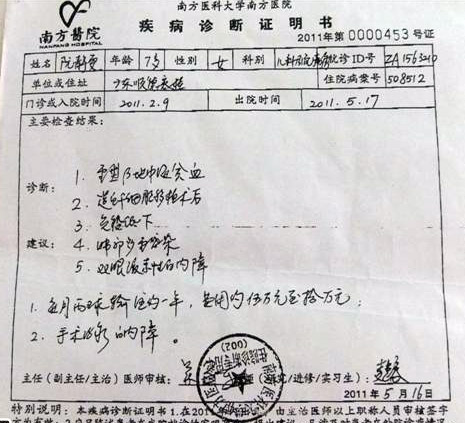 南方醫院
NANFANG HOSPITAL
南方医科大学南方医院
疾病诊断证明书
2011年第0000453号证
姓名 年龄 7岁 性别 女 科别 诊ID号
单位或住址 住院病案号 508512
门诊或入院时间 2011.2.9 出院时间 2011.5.17
主要检查结果:
诊断:
1. 重型β地中海贫血
2. 造血干细胞移植术后
3. 免疫低下
建议: 4. 肺部多重感染
5. 双眼激素性白内障
1. 每月两次输注约一年,费用约伍万元至拾万元;
2. 手术治疗白内障。
主任(副主任/主治)医师审核: 医师(研究/进修/实习生):
(002)
2011年5月16日
特别说明:本疾病诊断证明书1.在2011年 由主治医师以上职称人员审核签字